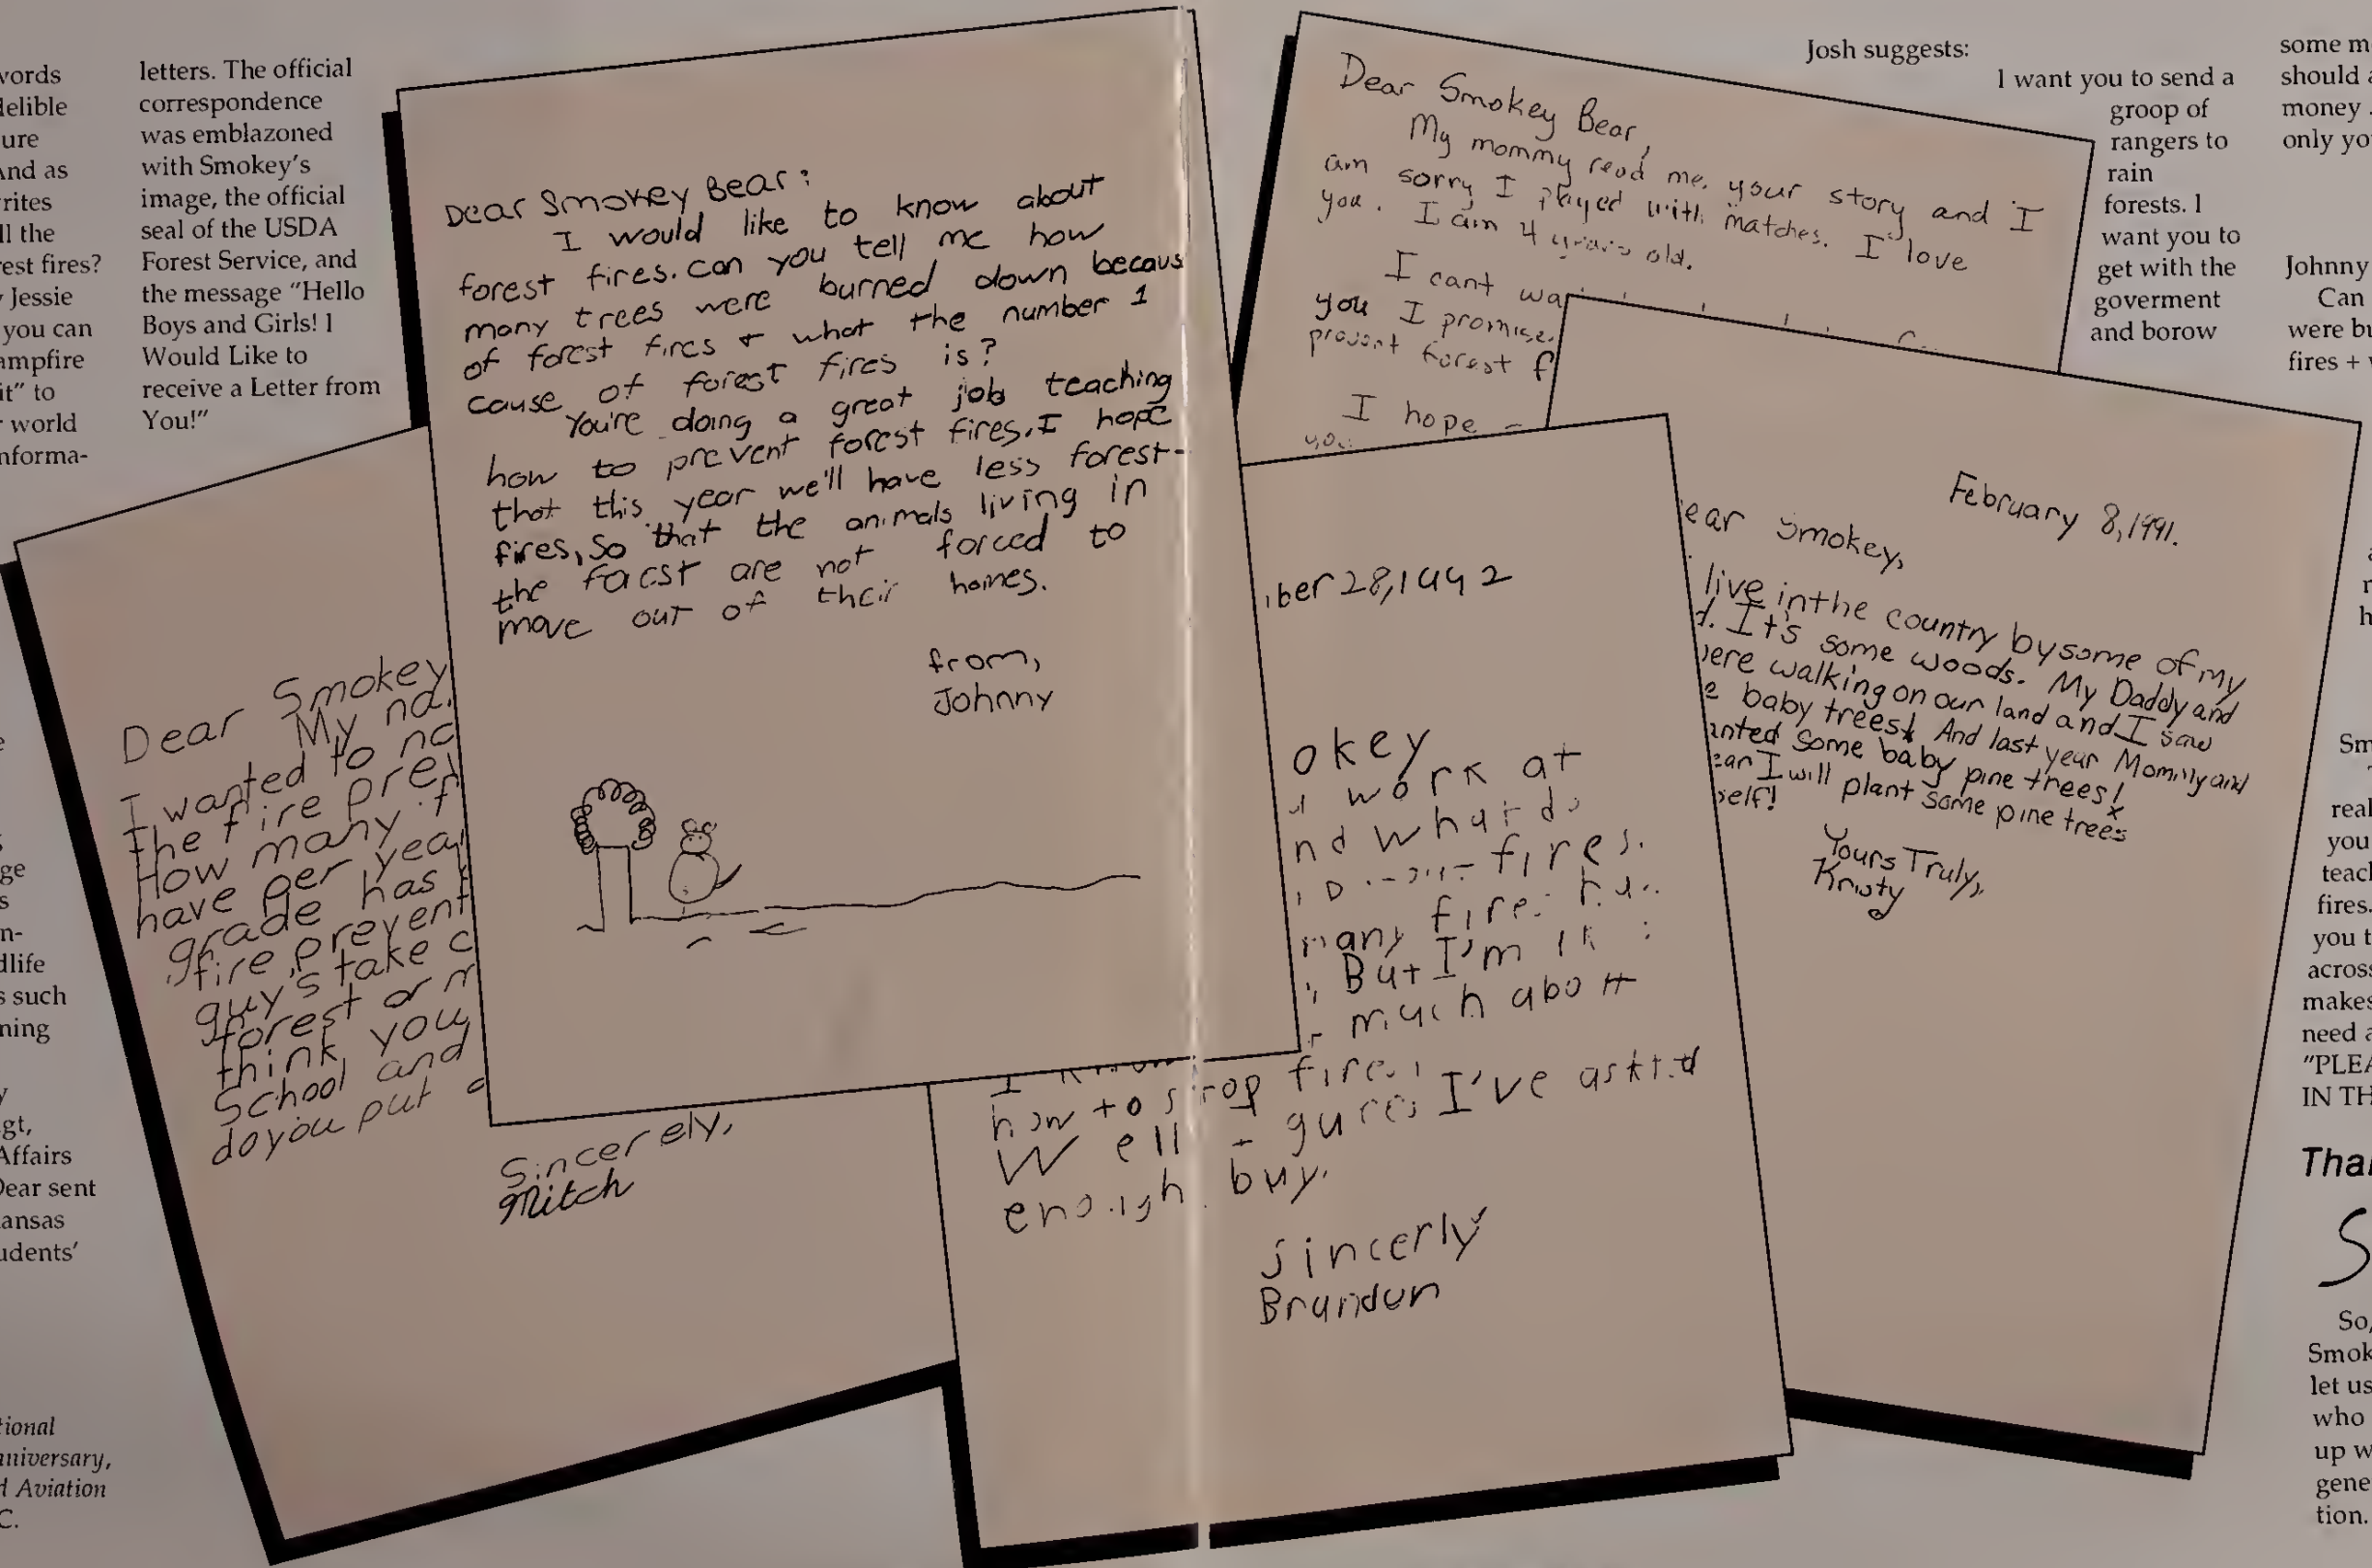 words
delible
ure
And as
rites
ll the
rest fires?
y Jessie
you can
ampfire
it" to
r world
nforma-
ge
s
n-
dlife
s such
ning
y
gt,
Affairs
Dear sent
ansas
udents'
tional
nniversary,
d Aviation
C.
letters. The official
correspondence
was emblazoned
with Smokey's
image, the official
seal of the USDA
Forest Service, and
the message "Hello
Boys and Girls! I
Would Like to
receive a Letter from
You!"
Dear Smokey
My na
I wanted to
the fire prev
How many f
have per year
grade has
fire prevent
guy's take c
forest or m
think you
School and
do you put
Sincerely,
Mitch
Dear Smokey Bear:
I would like to know about
forest fires. Can you tell me how
many trees were burned down becaus
of forest fires + what the number 1
cause of forest fires is?
You're doing a great job teaching
how to prevent forest fires. I hope
that this year we'll have less forest-
fires, so that the animals living in
the forest are not forced to
move out of their homes.
from,
Johnny
Dear Smokey Bear,
My mommy read me your story and I
am sorry I played with matches. I love
you. I am 4 years old.
I cant wa
you I promise.
prevent forest f
I hope
you
ber 28, 1992
okey
work at
nd what do
fires.
many fires
But I'm
much about
how to stop fires
Well I gures I've asked
enough. buy.
sincerly
Brandon
February 8, 1991.
ear Smokey,
live in the country by some of my
d. It's some woods. My Daddy and
ere walking on our land and I saw
e baby trees! And last year Mommy and
anted some baby pine trees!
ear I will plant some pine trees
self!
Yours Truly,
Kristy
Josh suggests:
I want you to send a
groop of
rangers to
rain
forests. I
want you to
get with the
goverment
and borow
some m
should a
money
only yo
Johnny
Can
were bu
fires +
Sm
real
you
teach
fires.
you t
across
makes
need a
"PLEA
IN TH
Than
S
So,
Smok
let us
who
up w
gene
tion.